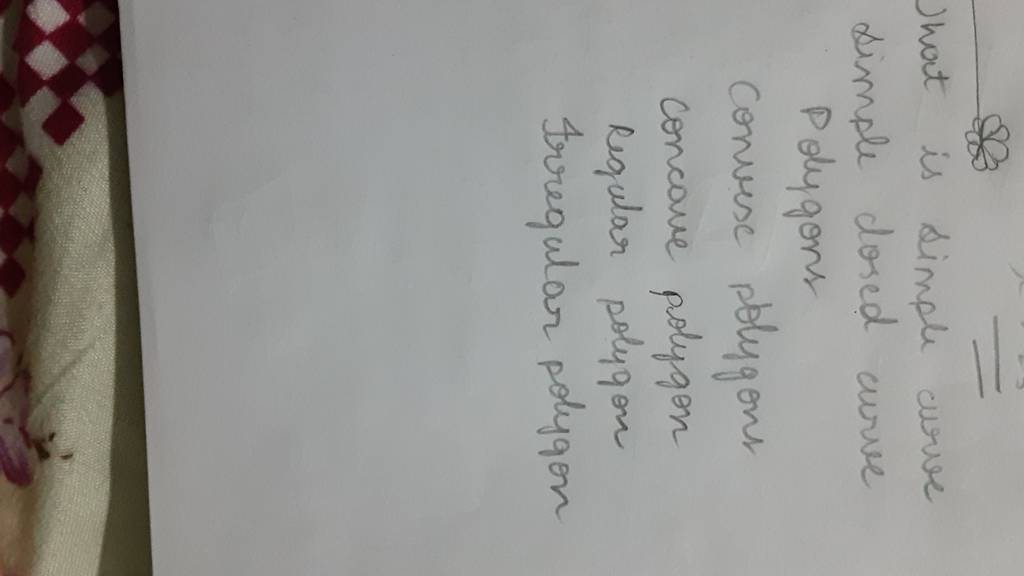 What is simple curve
simple closed curve
Polygons
Convex polygons
Concave polygon
Regular polygon
Irregular polygon